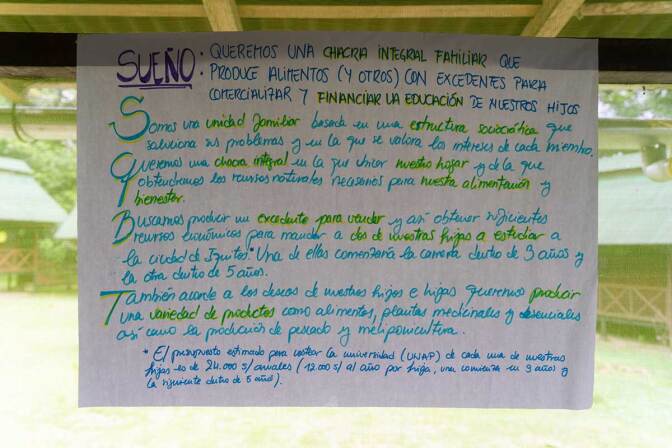 SUEÑO: QUEREMOS UNA CHACRA INTEGRAL FAMILIAR QUE
PRODUCE ALIMENTOS (Y OTROS) CON EXCEDENTES PARA
COMERCIALIZAR Y FINANCIAR LA EDUCACIÓN DE NUESTROS HIJOS
Somos una unidad familiar basada en una estructura sociocrática que
soluciona sus problemas y en la que se valora los intereses de cada miembro.
Queremos una chacra integral en la que vivir nuestro hogar y de la que
obtendremos los recursos naturales necesarios para nuestra alimentación y
bienestar.
Buscamos producir un excedente para vender y así obtener suficientes
recursos económicos para mandar a dos de nuestras hijas a estudiar a
la ciudad de Iquitos.* Una de ellas comenzaría la carrera dentro de 3 años y
la otra dentro de 5 años.
También acorde a los deseos de nuestros hijos e hijas queremos producir
una variedad de productos como alimentos, plantas medicinales y esenciales
así como la producción de pescado y meliponicultura.
* El presupuesto estimado para costear la universidad (UNAP) de cada una de nuestras
hijas es de 24.000 s/ anuales (12.000 s/ al año por hija, una comienza en 3 años y
la siguiente dentro de 5 años).